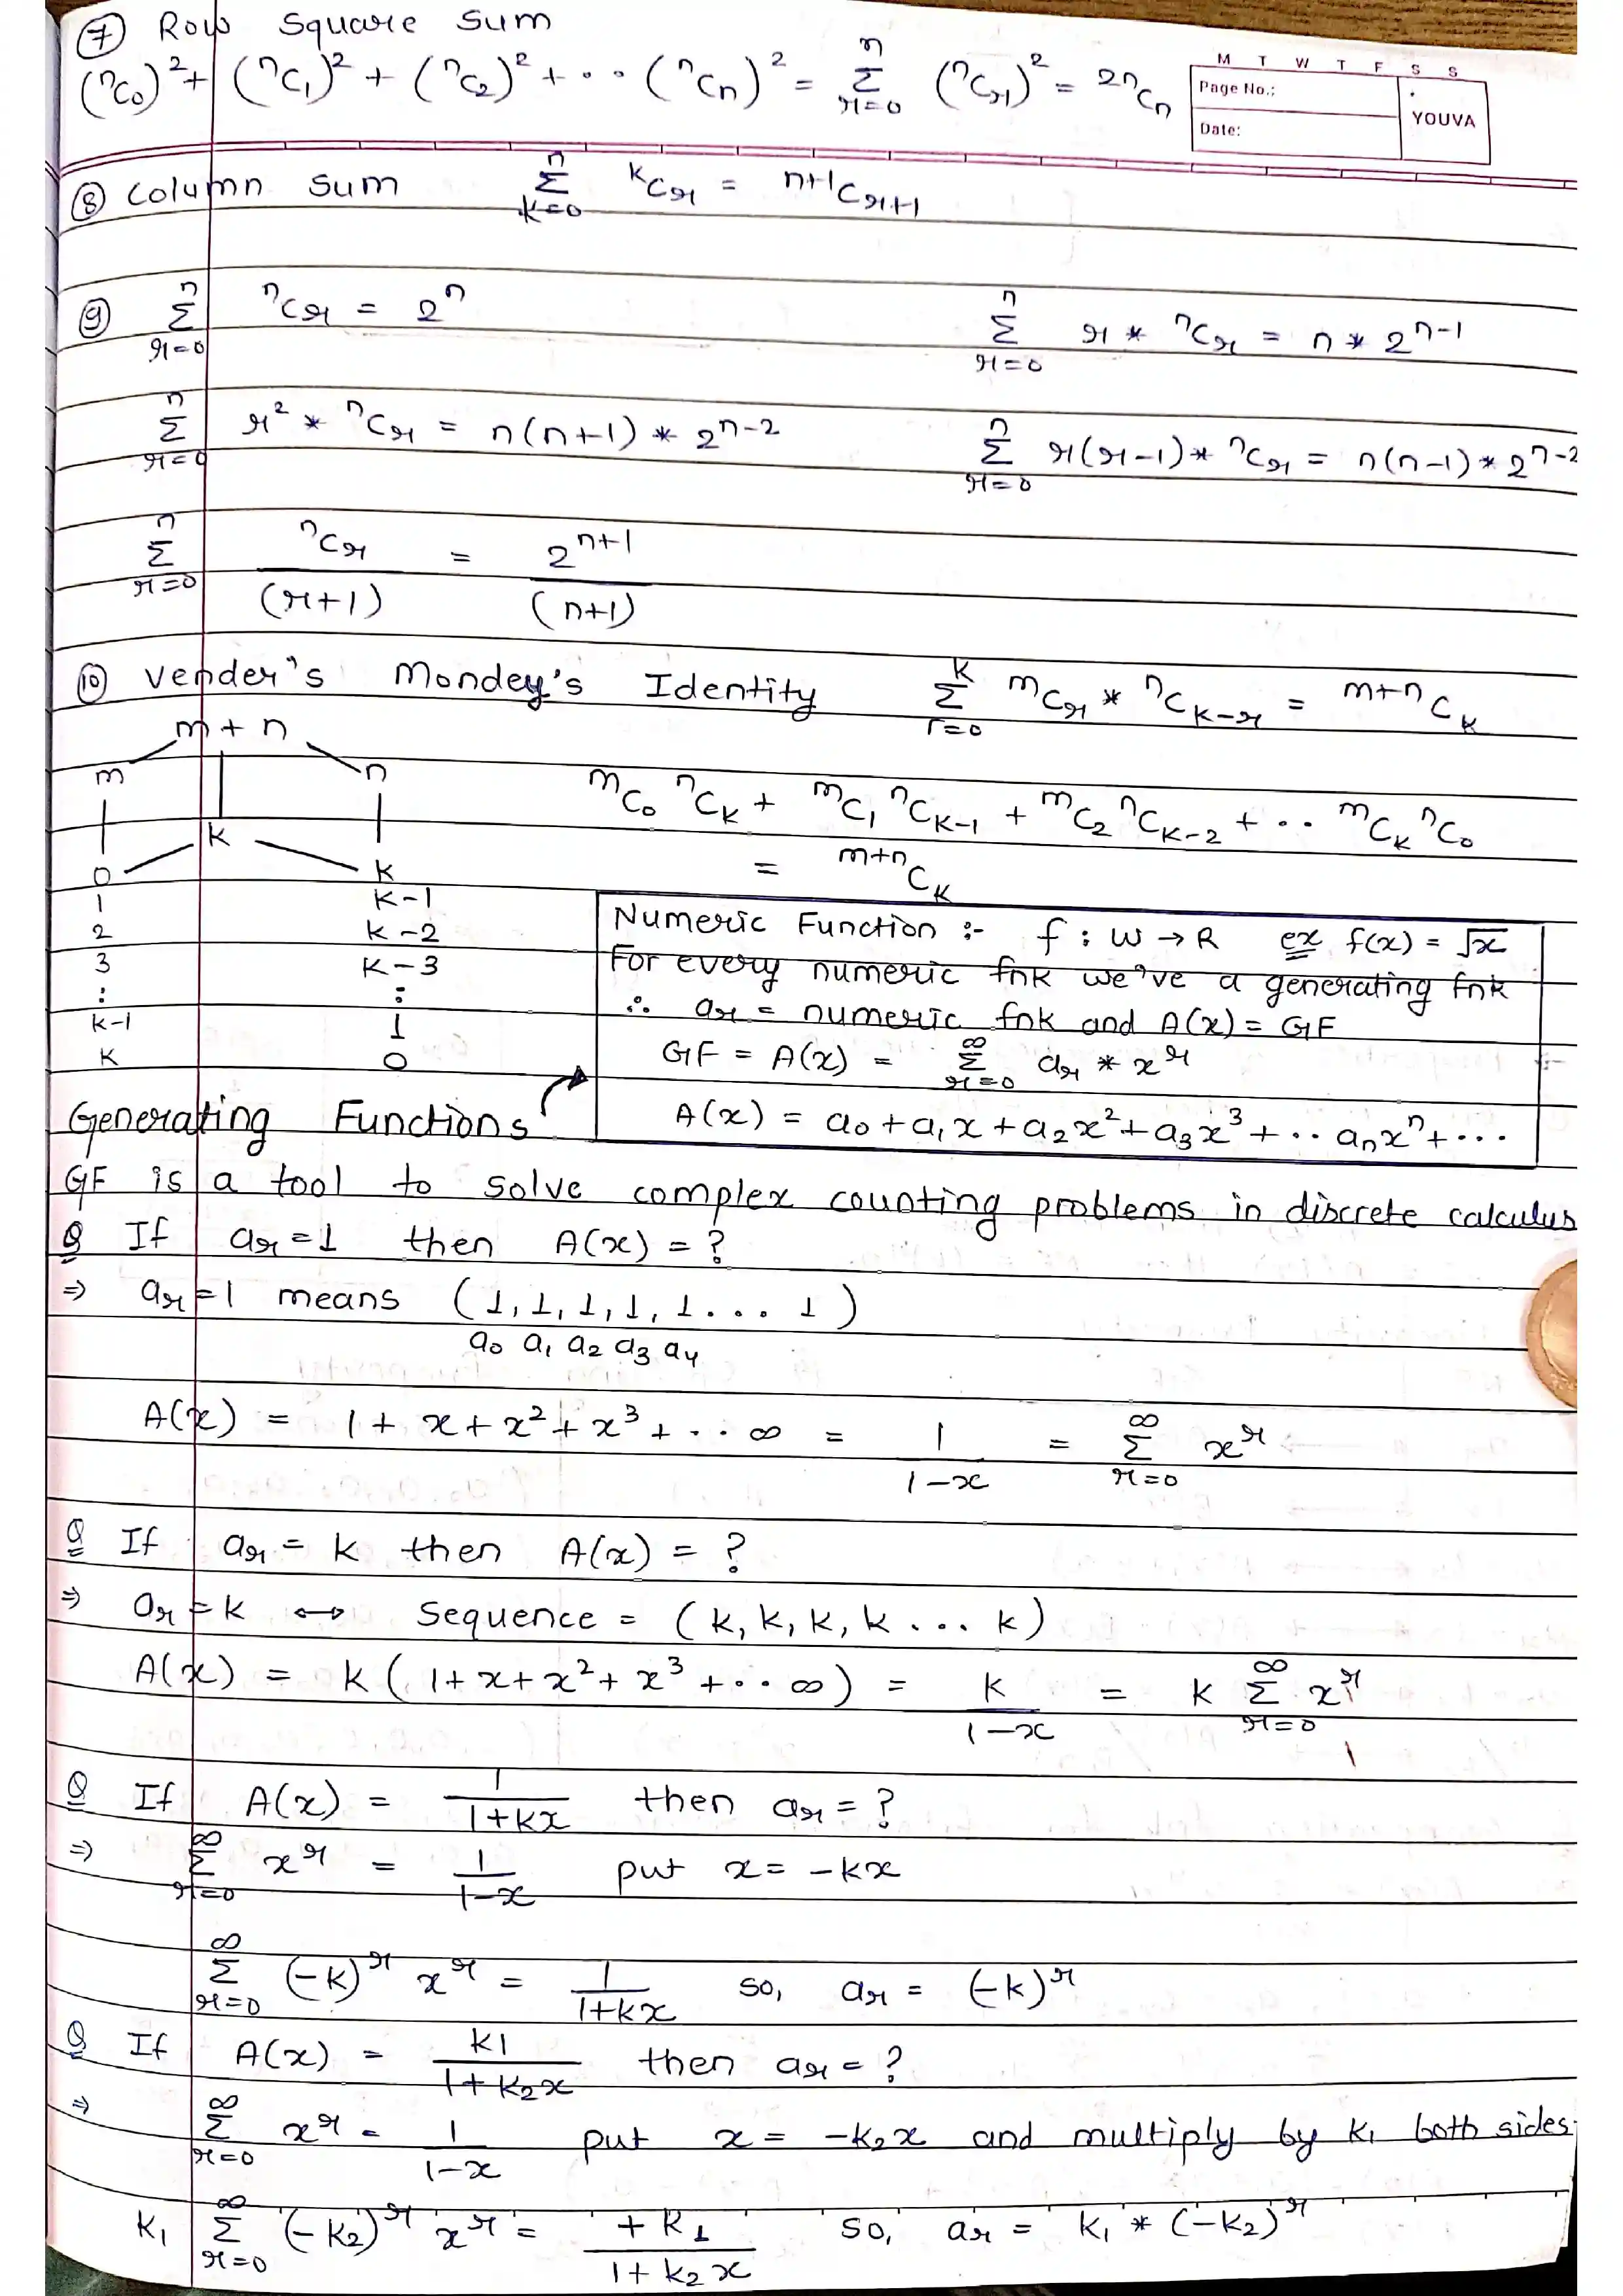 ⑦ Row Square Sum
(ⁿC₀)² + (ⁿC₁)² + (ⁿC₂)² + ... (ⁿCₙ)² = Σ_{r=0}^{n} (ⁿCᵣ)² = ²ⁿCₙ
M T W T F S S
Page No.:
Date:
YOUVA
⑧ Column Sum Σ_{k=0}^{n} ᵏCᵣ = ⁿ⁺¹Cᵣ₊₁
⑨ Σ_{r=0}^{n} ⁿCᵣ = 2ⁿ Σ_{r=0}^{n} r * ⁿCᵣ = n * 2ⁿ⁻¹
Σ_{r=0}^{n} r² * ⁿCᵣ = n(n+1) * 2ⁿ⁻² Σ_{r=0}^{n} r(r-1) * ⁿCᵣ = n(n-1) * 2ⁿ⁻²
Σ_{r=0}^{n} ⁿCᵣ / (r+1) = 2ⁿ⁺¹ / (n+1)
⑩ Vender's Mondey's Identity Σ_{r=0}^{k} ᵐCᵣ * ⁿC_{k-r} = ᵐ⁺ⁿC_k
m + n
m n
k
0 k
1 k-1
2 k-2
3 k-3
: :
k-1 1
k 0
ᵐC₀ ⁿC_k + ᵐC₁ ⁿC_{k-1} + ᵐC₂ ⁿC_{k-2} + .. ᵐC_k ⁿC₀
= ᵐ⁺ⁿC_k
Numeric Function :- f : W → R ex f(x) = √x
For every numeric fnk we've a generating fnk
∴ aᵣ = numeric fnk and A(x) = GF
GF = A(x) = Σ_{r=0}^{∞} aᵣ * xʳ
A(x) = a₀ + a₁x + a₂x² + a₃x³ + .. aₙxⁿ + ...
Generating Functions
GF is a tool to solve complex counting problems in discrete calculus
Q If aᵣ = 1 then A(x) = ?
⇒ aᵣ = 1 means (1, 1, 1, 1, 1 . . . 1)
a₀ a₁ a₂ a₃ a₄
A(x) = 1 + x + x² + x³ + . . ∞ = 1 / (1-x) = Σ_{r=0}^{∞} xʳ
Q If aᵣ = k then A(x) = ?
⇒ aᵣ = k ↔ Sequence = (k, k, k, k . . . k)
A(x) = k (1 + x + x² + x³ + . . ∞) = k / (1-x) = k Σ_{r=0}^{∞} xʳ
Q If A(x) = 1 / (1+kx) then aᵣ = ?
⇒ Σ_{r=0}^{∞} xʳ = 1 / (1-x) put x = -kx
Σ_{r=0}^{∞} (-k)ʳ xʳ = 1 / (1+kx) so, aᵣ = (-k)ʳ
Q If A(x) = k1 / (1+k₂x) then aᵣ = ?
⇒ Σ_{r=0}^{∞} xʳ = 1 / (1-x) put x = -k₂x and multiply by k₁ both sides
k₁ Σ_{r=0}^{∞} (-k₂)ʳ xʳ = +k₁ / (1+k₂x) so, aᵣ = k₁ * (-k₂)ʳ